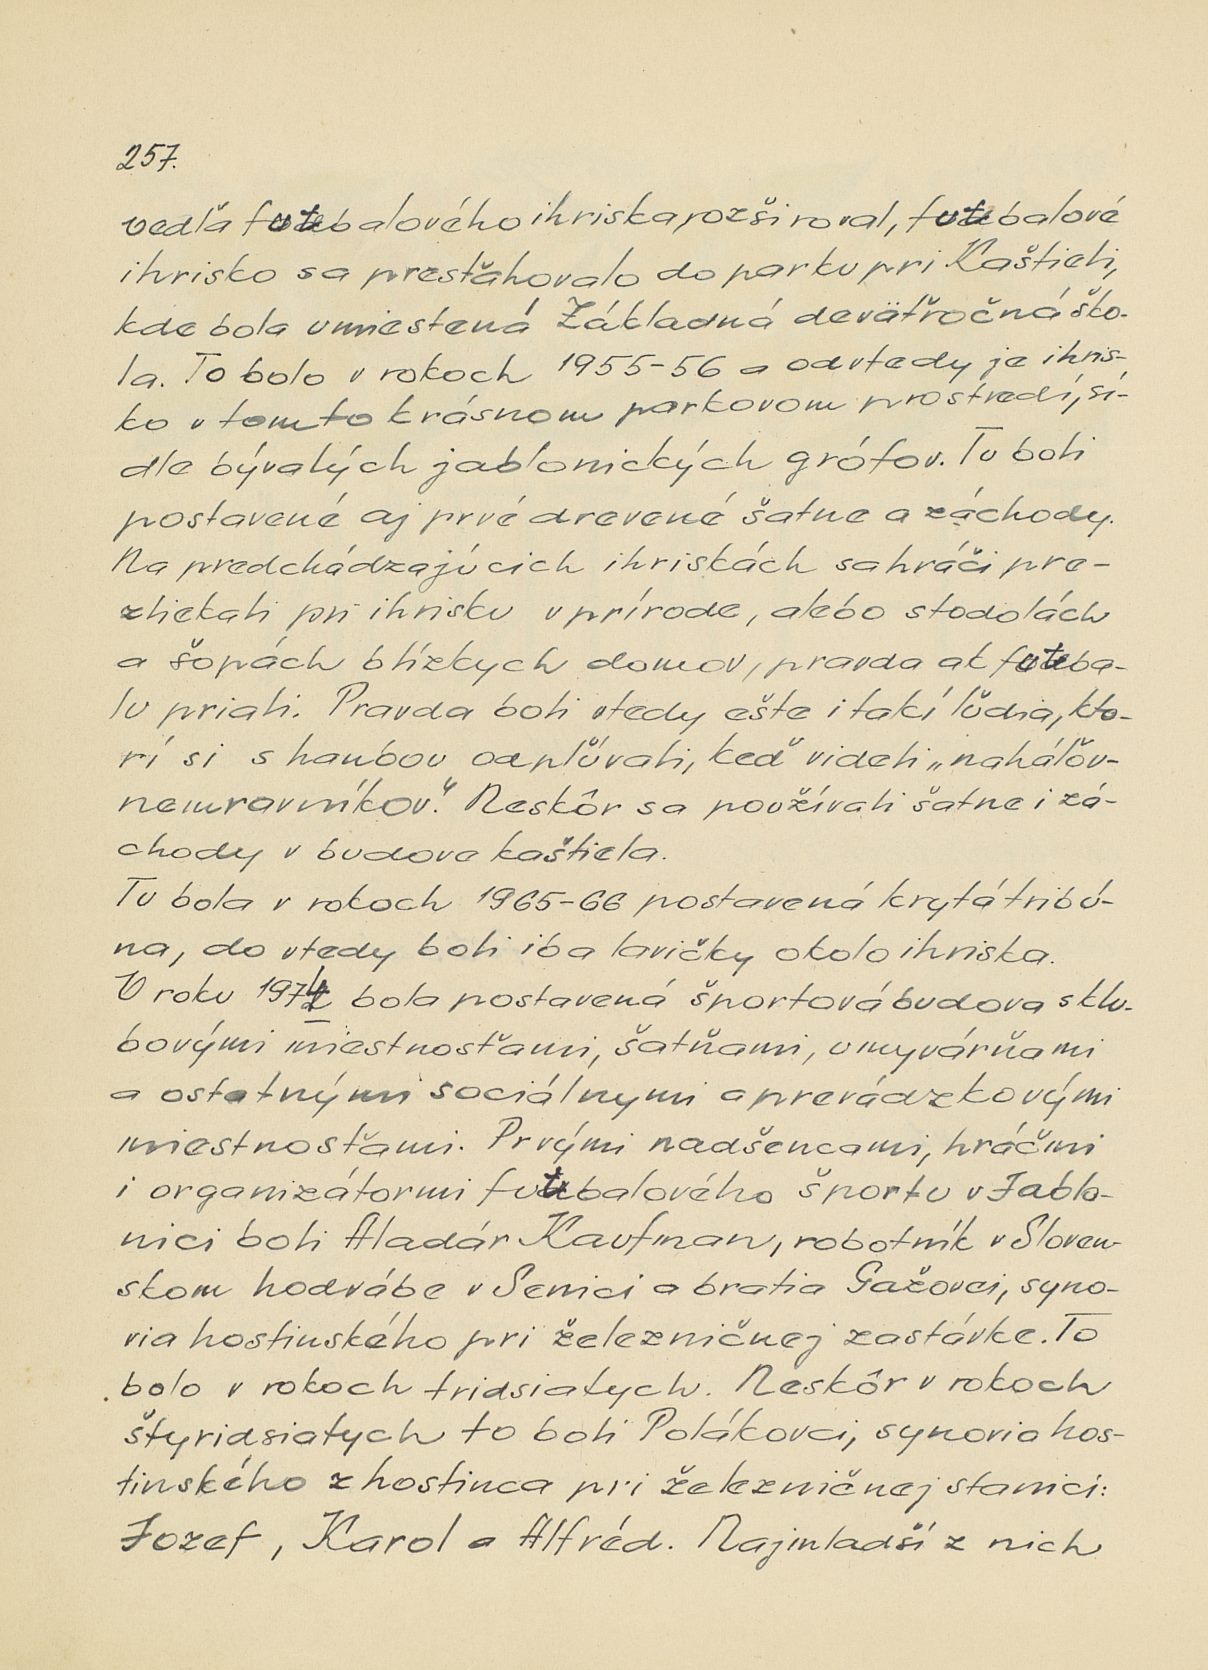 257.
vedľa futbalového ihriska rozširoval, futbalové
ihrisko sa presťahovalo do parku pri Kaštieli,
kde bola umiestená Základná deväťročná ško-
la. To bolo v rokoch 1955-56 a odvtedy je ihris-
ko v tomto krásnom parkovom prostredí, sí-
dle bývalých jablonických grófov. Tu boli
postavené aj prvé drevené šatne a záchody.
Na predchádzajúcich ihriskách sa hráči pre-
zliekali pri ihrisku v prírode, alebo stodolách
a šopách blízkych domov, pravda ak futba-
lu priali. Pravda boli vtedy ešte i takí ľudia, kto-
rí si s hanbou odpľúvali, keď videli „naháľov-
nemravníkov." Neskôr sa používali šatne i zá-
chody v budove kaštiela.
Tu bola v rokoch 1965-66 postavená krytá tribú-
na, do vtedy boli iba lavičky okolo ihriska.
V roku 1974 bola postavená športová budova s klu-
bovými miestnosťami, šatňami, umyvárňami
a ostatnými sociálnymi a prevádzkovými
miestnosťami. Prvými nadšencami, hráčmi
i organizátormi futbalového športu v Jablo-
nici boli Aladár Kaufman, robotník v Sloven-
skom hodvábe v Senici a bratia Gažovci, syno-
via hostinského pri železničnej zastávke. To
bolo v rokoch tridsiatych. Neskôr v rokoch
štyridsiatych to boli Polákovci, synovia hos-
tinského z hostinca pri železničnej stanici:
Jozef, Karol a Alfréd. Najmladší z nich